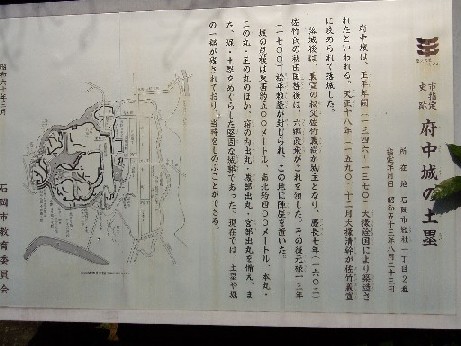 市指定
史跡
府中城の土塁
所在地 石岡市総社一丁目2番
指定年月日 昭和五十三年八月二十三日
府中城は、正平年間(一三四六〜一三七〇)大掾詮国により築造さ
れたといわれる。天正十八年(一五九〇)十二月大掾清幹が佐竹義宣
に攻められて落城した。
落城後は、義宣の叔父佐竹義尚が城主となり、慶長七年(一六〇二)
佐竹氏の秋田国替後は、六郷政乗がこれを領した。その後元禄十三年
(一七〇〇)松平頼隆が封じられ、この地に陣屋を置いた。
城の規模は東西約五〇〇メートル、南北約四〇〇メートル、本丸・
二の丸・三の丸のほか、箱の内出丸・磯部出丸・宮部出丸を備え、ま
た、堀・土塁をめぐらした堅固な城郭であった。現在では、土塁や堀
の一部が残されており、当時をしのぶことができる。
昭和六十年三月
石岡市教育委員会